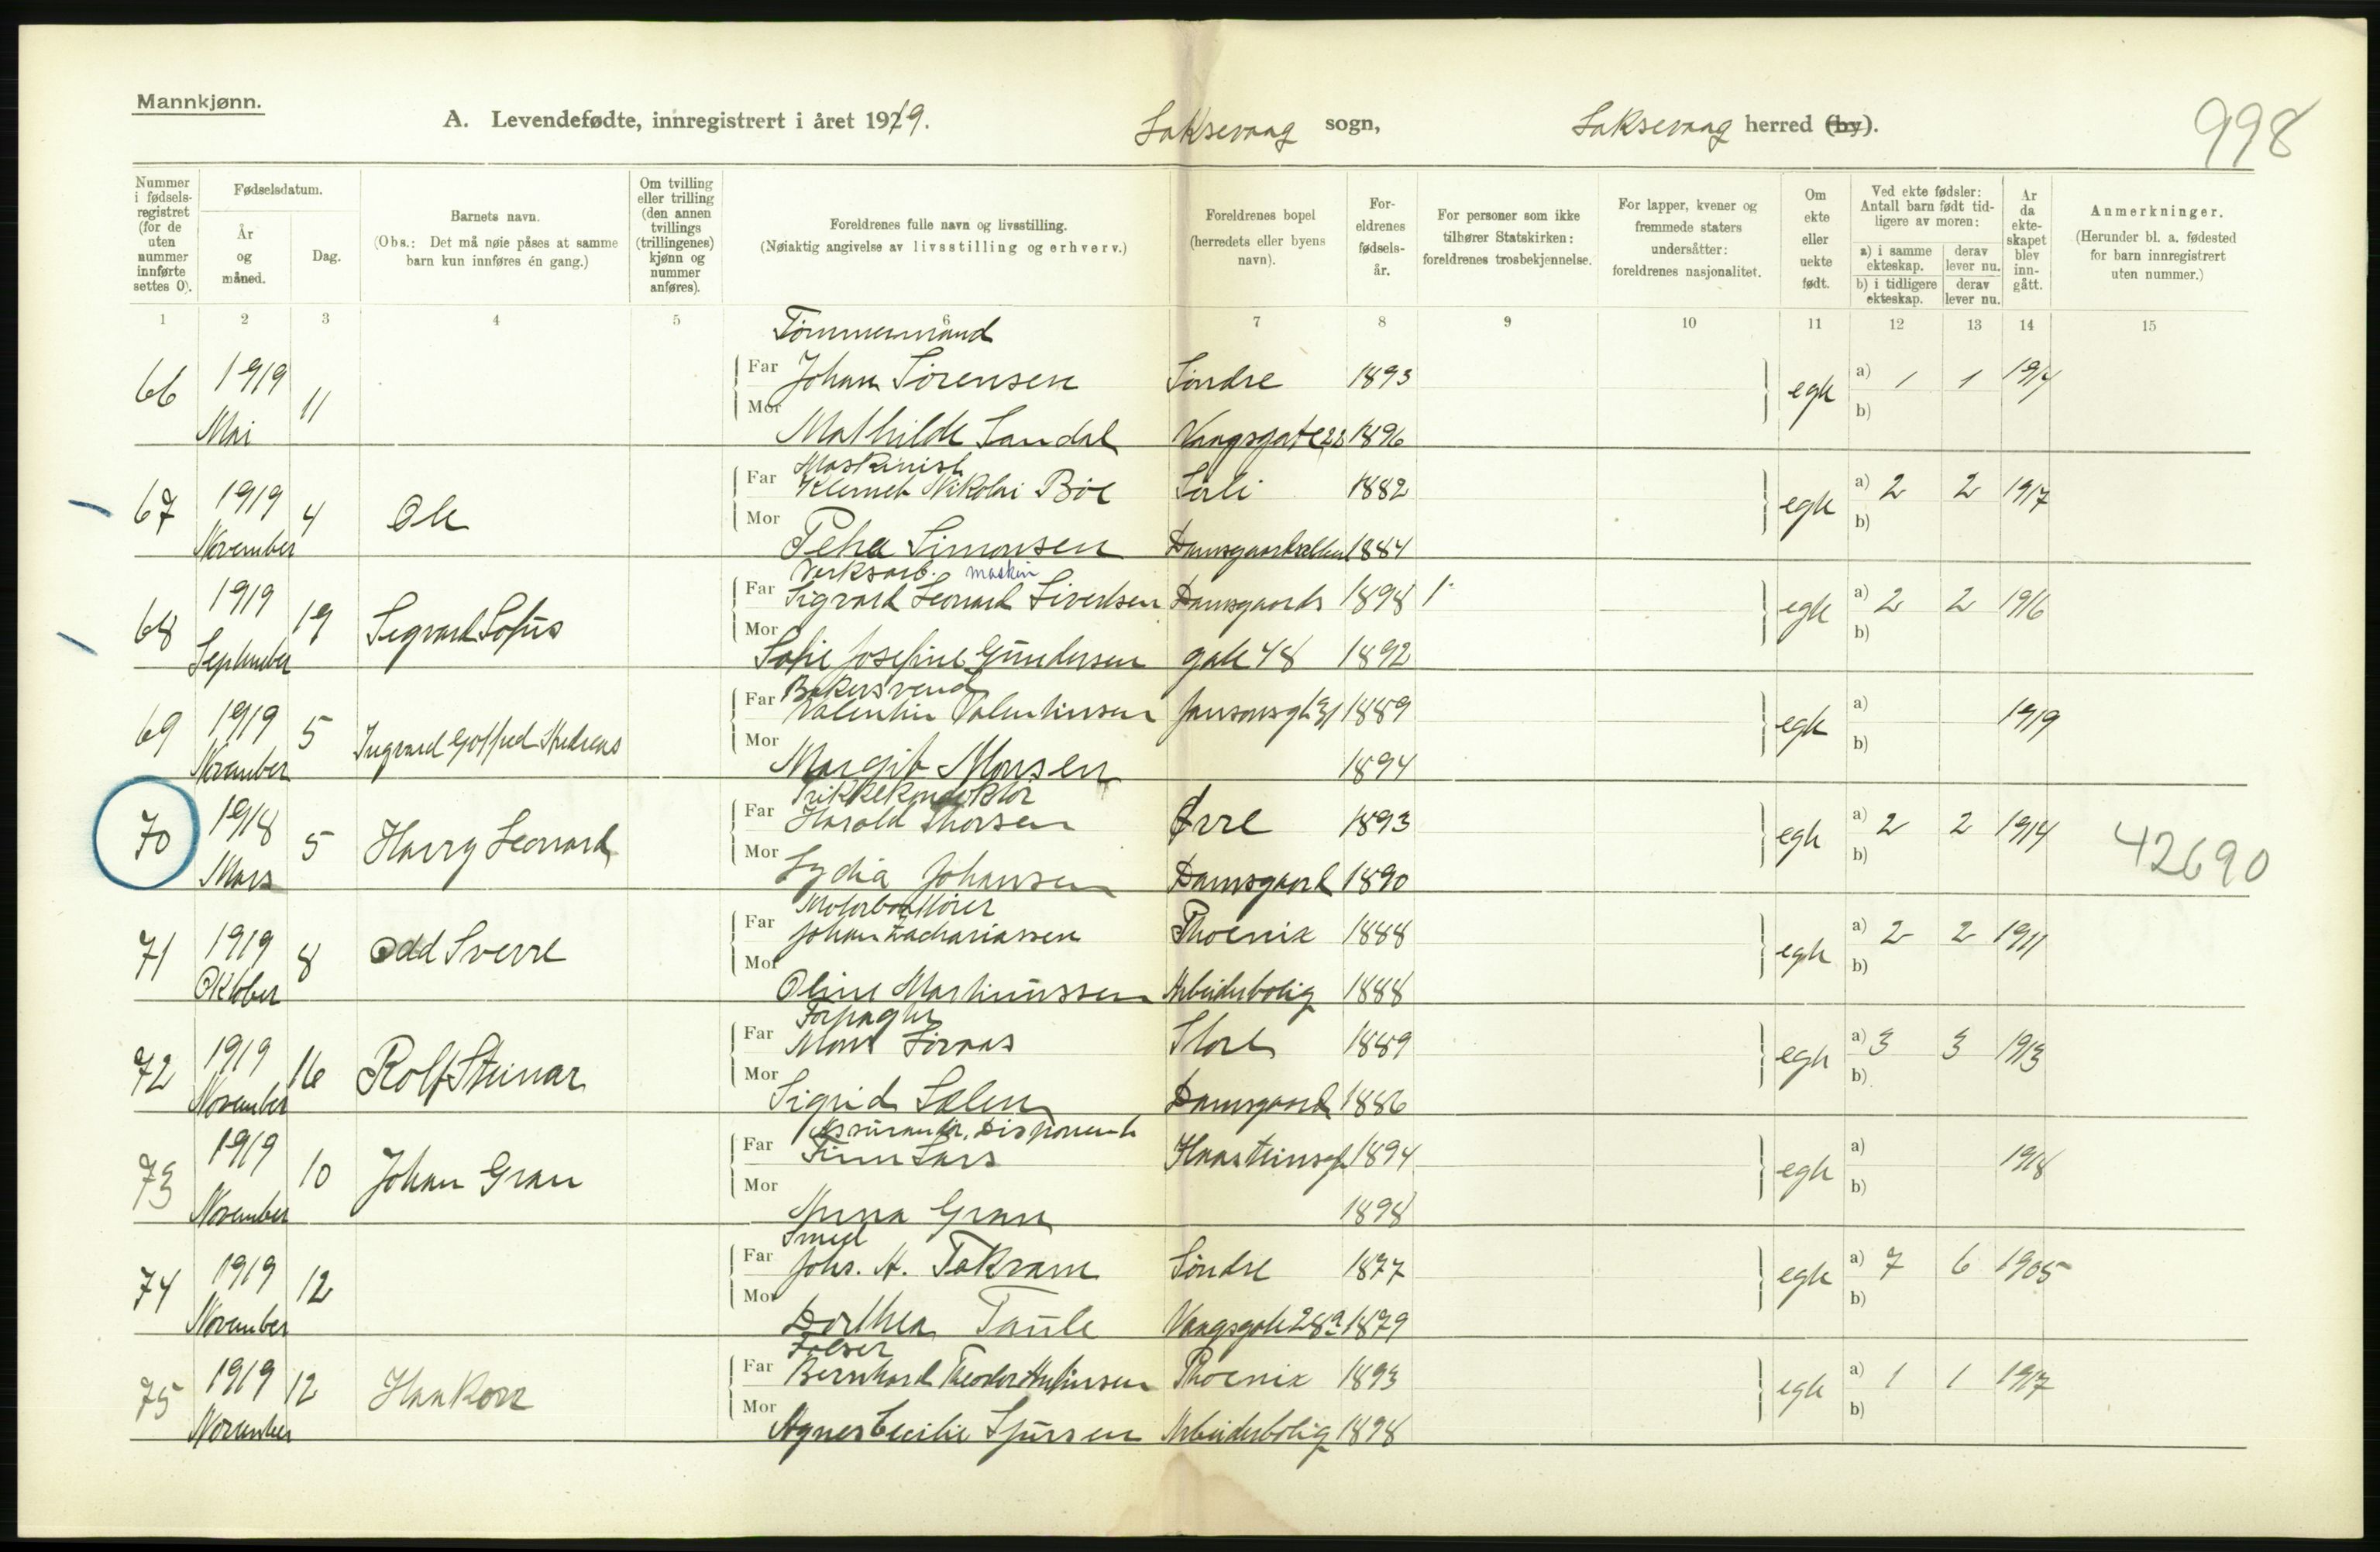 Mannkjønn.
A. Levendefødte, innregistrert i året 1919.
Laksevaag sogn,
Laksevaag herred (by).
998
Nummer i fødsels-registret (for de uten nummer innførte settes 0).
Fødselsdatum.
År og måned.
Dag.
Barnets navn.
(Obs.: Det må nøie påses at samme barn kun innføres én gang.)
Om tvilling eller trilling (den annen tvillings (trillingenes) kjønn og nummer anføres).
Foreldrenes fulle navn og livsstilling.
(Nøiaktig angivelse av livsstilling og erhverv.)
Foreldrenes bopel (herredets eller byens navn).
For-eldrenes fødsels-år.
For personer som ikke tilhører Statskirken: foreldrenes trosbekjennelse.
For lapper, kvener og fremmede staters undersåtter: foreldrenes nasjonalitet.
Om ekte eller uekte født.
Ved ekte fødsler: Antall barn født tid-ligere av moren:
a) i samme ekteskap. derav lever nu.
b) i tidligere ekteskap. derav lever nu.
År da ekte-skapet blev inn-gått.
Anmerkninger.
(Herunder bl. a. fødested for barn innregistrert uten nummer.)
1 2 3 4 5 6 7 8 9 10 11 12 13 14 15
Tømmermand
66 1919 11 Far Johan Sørensen Søndre 1893 egte a) 1 1 1917
Mai Mor Mathilde Sandal Vaagsgate 28 1896 b)
Maskinist
67 1919 4 Ole Far Klemet Nikolai Böe 1882 egte a) 2 2 1917
November Mor Simonsen 1884 b)
Verksarb. maskin
68 1919 19 Sigvard Sofus Far Sigvard Leonard Sivertsen Damsgaards 1898 1 egte a) 2 2 1916
September Mor Sofie Josefine Gundersen gate 48 1892 b)
Bakersvend
69 1919 5 Ingvard Gotfred Far Valentin Valentinsen Jansonsgt 31 1889 egte a) 1919
November Mor Margit Monsen 1894 b)
Trikkekonduktør
70 1918 5 Harry Leonard Far Harald Thorsen Øvre 1893 egte a) 2 2 1914 42690
Mars Mor Lydia Johansen Damsgaard 1890 b)
Motorbaatfører
71 1919 8 Odd Sverre Far Johan Zachariassen Phoenix 1888 egte a) 2 2 1911
Oktober Mor Oline Martinussen Arbeiderbolig 1888 b)
Forpagter
72 1919 16 Rolf Steinar Far Mons Store 1889 egte a) 3 3 1913
November Mor Sigrid Sælen Damsgaard 1886 b)
73 1919 10 Johan Gran Far Finn Lars 1894 egte a) 1918
November Mor Anna Gran 1898 b)
Smed
74 1919 12 Far Johs. A. Takvam Søndre 1877 egte a) 7 6 1905
November Mor Dorthea Taule Vaagsgate 28a 1879 b)
75 1919 12 Haakon Far Bernhard Theodor Phoenix 1893 egte a) 1 1 1917
November Mor Agnes Cecilie Arbeiderbolig 1898 b)